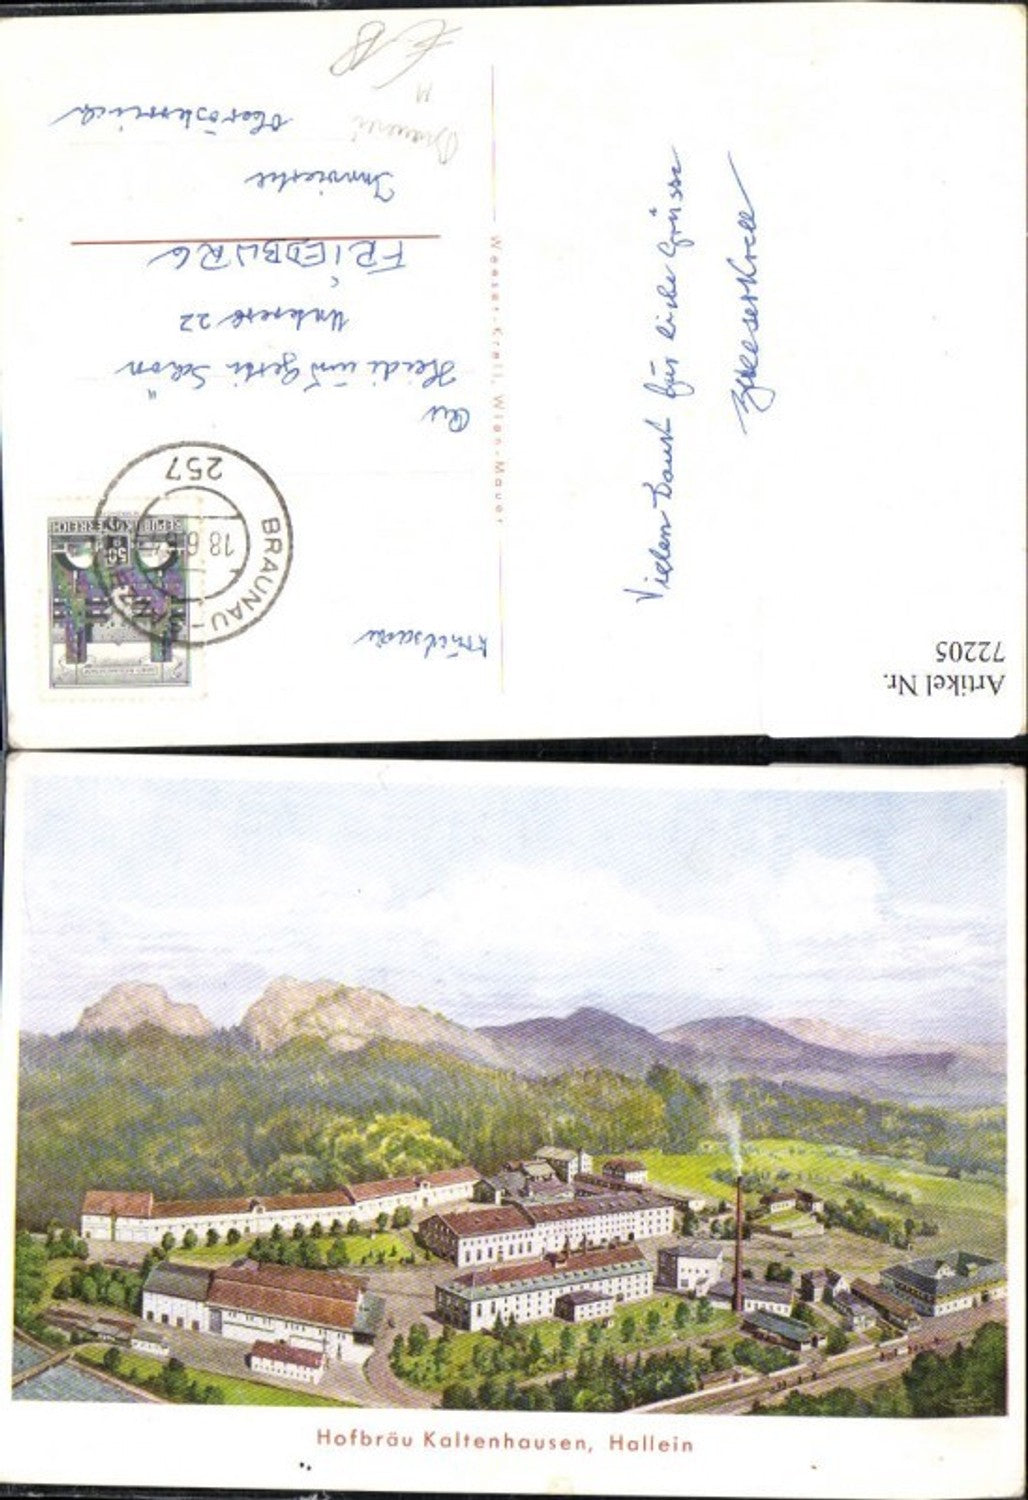 Artikel Nr.
72205
Vielen Dank für liebe Grüsse
REPUBLIK ÖSTERREICH
50
BRAUNAU-
18.6.
257
An
Heidi und Gerti Schön
Unterert 22
FRIEDBURG
Innviertel
Oberösterreich
Brauerei
Weeser-Krell, Wien-Mauer
Hofbräu Kaltenhausen, Hallein